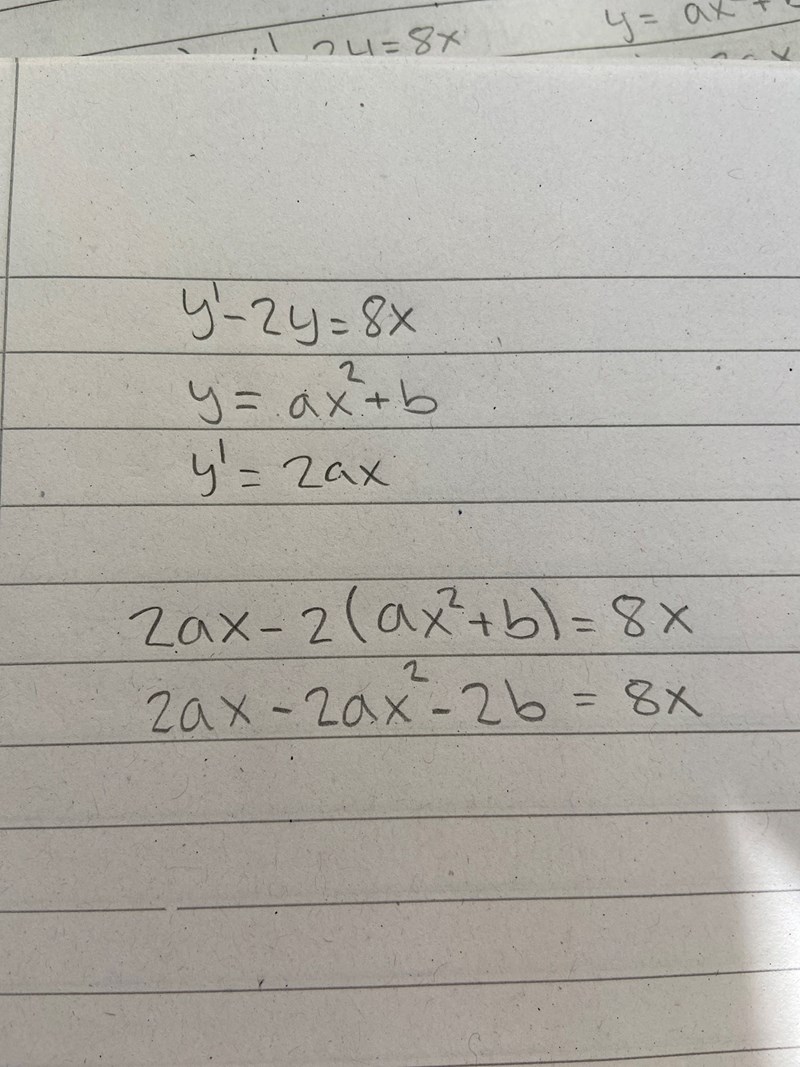 2y=8x
y= ax
y'-2y=8x
y= ax²+b
y'= 2ax
2ax-2(ax²+b)=8x
2ax-2ax²-2b=8x